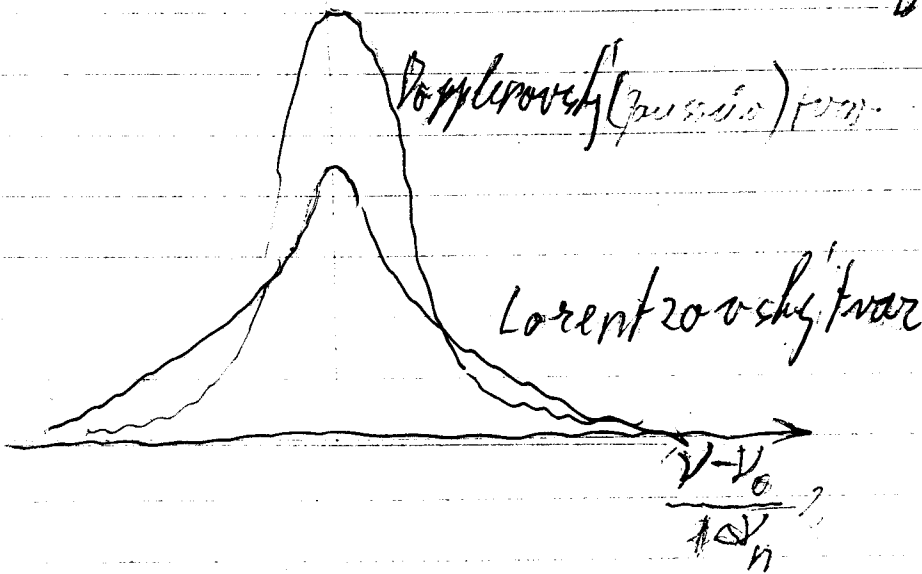 Dopplerovský ( ) tvar.
Lorentzovský tvar
ν-ν₀
Δνₙ